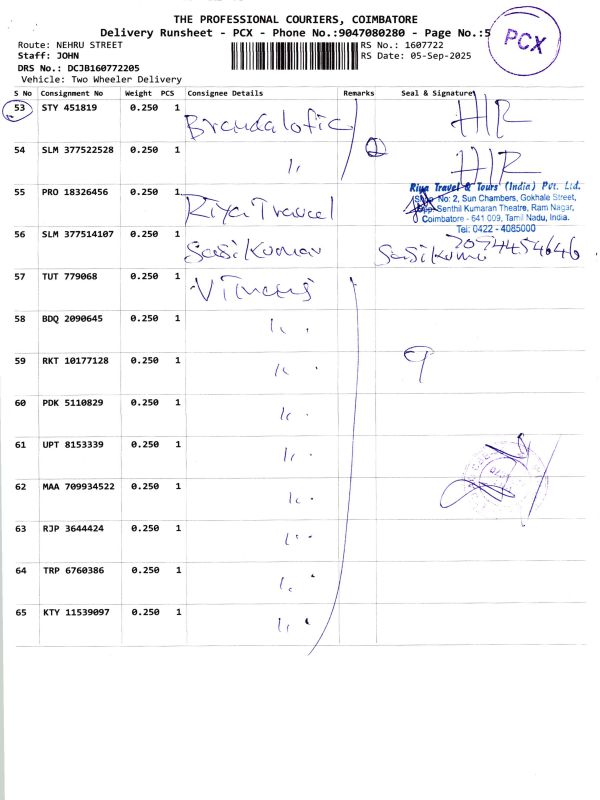 THE PROFESSIONAL COURIERS, COIMBATORE
Delivery Runsheet - PCX - Phone No.:9047080280 - Page No.:5
PCX
Route: NEHRU STREET
RS No.: 1607722
Staff: JOHN
RS Date: 05-Sep-2025
DRS No.: DCJB160772205
Vehicle: Two Wheeler Delivery
S No Consignment No Weight PCS Consignee Details Remarks Seal & Signature
53 STY 451819 0.250 1
54 SLM 377522528 0.250 1
55 PRO 18326456 0.250 1 Riya Travel
Riya Travel & Tours (India) Pvt. Ltd.
Shop No: 2, Sun Chambers, Gokhale Street,
Opp. Senthil Kumaran Theatre, Ram Nagar,
Coimbatore - 641 009, Tamil Nadu, India.
Tel: 0422 - 4085000
56 SLM 377514107 0.250 1 SasiKumar SasiKumar
57 TUT 779068 0.250 1
58 BDQ 2090645 0.250 1
59 RKT 10177128 0.250 1
60 PDK 5110829 0.250 1
61 UPT 8153339 0.250 1
62 MAA 709934522 0.250 1
63 RJP 3644424 0.250 1
64 TRP 6760386 0.250 1
65 KTY 11539097 0.250 1